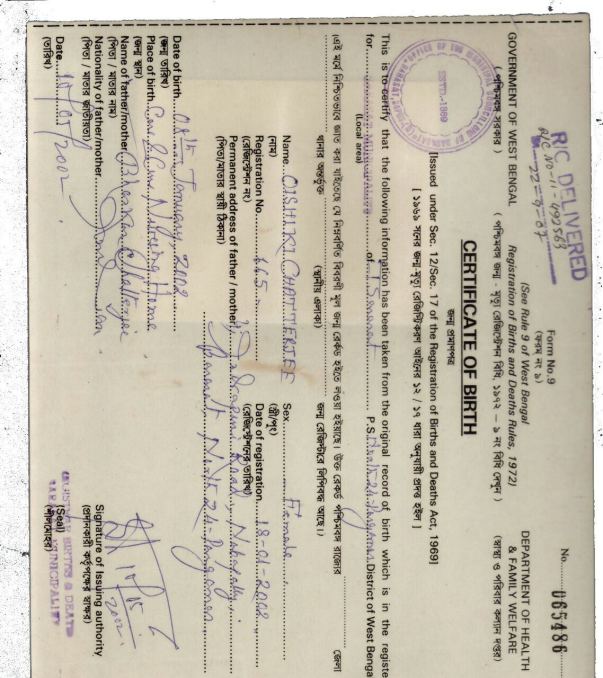 No. 065486
R/C DELIVERED
R/C NO-11-492563
Form No.9
(ফরম নং ৯)
(See Rule 9 of West Bengal
Registration of Births and Deaths Rules, 1972)
GOVERNMENT OF WEST BENGAL
( পশ্চিমবঙ্গ সরকার )
( পশ্চিমবঙ্গ জন্ম - মৃত্যু রেজিস্ট্রিকরণ বিধি, ১৯৭২ – ৯ নং বিধি দেখুন )
DEPARTMENT OF HEALTH
& FAMILY WELFARE
(স্বাস্থ্য ও পরিবার কল্যাণ দপ্তর)
CERTIFICATE OF BIRTH
জন্ম প্রমাণপত্র
ESTD-1869
Issued under Sec. 12/Sec. 17 of the Registration of Births and Deaths Act, 1969]
[ ১৯৬৯ সনের জন্ম মৃত্যু রেজিস্ট্রিকরণ আইনের ১২ / ১৭ ধারা অনুযায়ী প্রদত্ত হইল ]
This is to certify that the following information has been taken from the original record of birth which is in the registe
for of Barasat P.S District of West Benga
(Local area)
এই মর্মে নিশ্চিতভাবে জ্ঞাত করা যাইতেছে যে নিম্নবর্ণিত বিবরণী মূল জন্ম রেকর্ড হইতে লওয়া হইয়াছে। উক্ত রেকর্ড পশ্চিমবঙ্গ রাজ্যের জেলা
থানার অন্তর্ভুক্ত (স্থানীয় এলাকা) জন্ম রেজিস্টারে লিপিবদ্ধ আছে।
Name OISHIKI CHATTERJEE Sex Female
(নাম) (স্ত্রী/পুং)
Registration No. 665 Date of registration 18-01-2002
(রেজিস্ট্রেশন নং) (রেজিস্ট্রেশনের তারিখ)
Permanent address of father / mother Road, Nabapally,
(পিতা/মাতার স্থায়ী ঠিকানা) Barasat, North 24 Parganas
Date of birth 08th January, 2002
(জন্ম তারিখ)
Place of birth Care & Cure Nursing Home
(জন্ম স্থান)
Name of father/mother Bhaskar Chatterjee
(পিতা / মাতার নাম)
Nationality of father/mother Indian
(পিতা / মাতার জাতীয়তা)
Date
(তারিখ)
Signature of Issuing authority
(প্রদানকারী কর্তৃপক্ষের স্বাক্ষর)
(Seal)
(শীলমোহর)